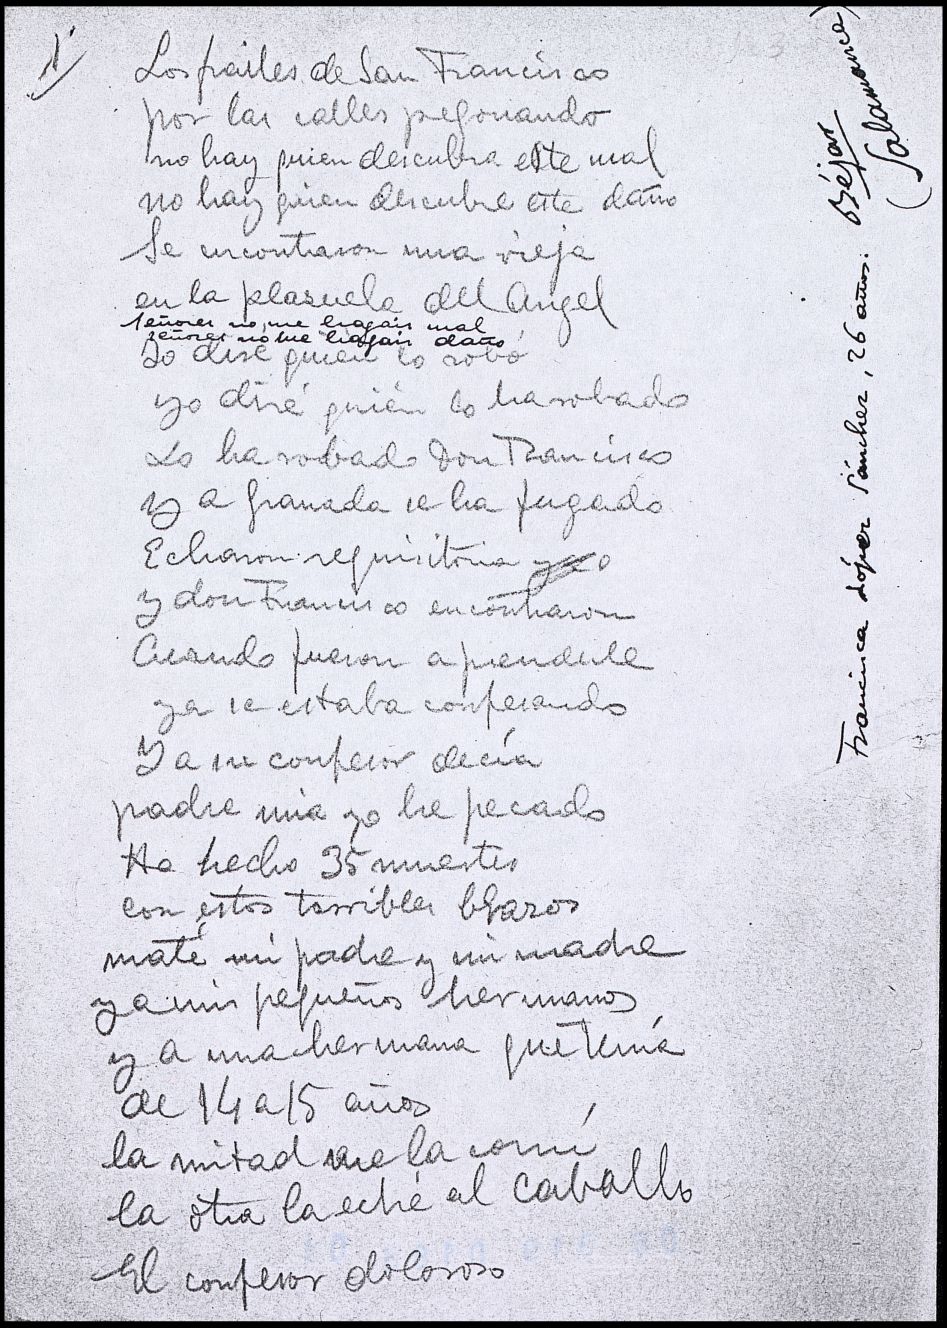 1)
Los frailes de San Francisco
por las calles pregonando
no hay quien descubra este mal
no hay quien descubre este daño
Se encontraron una vieja
en la plazuela del Angel
señores no me hagáis mal
señores no me hagáis daño
Yo diré quien lo robó
yo diré quién lo ha robado
Lo ha robado Don Francisco
y a Granada se ha fugado
Echaron requisitoria
y don Francisco encontraron
Cuando fueron a prenderle
ya se estaba confesando
Y a su confesor decía
padre mia yo he pecado
He hecho 35 muertes
con estos terribles brazos
maté mi padre y mi madre
y a mis pequeños hermanos
y a una hermana que tenía
de 14 a 15 años
la mitad me la comí
la otra la eché al caballo
El confesor doloroso
Francisca López Sánchez, 26 años. Béjar
(Salamanca)